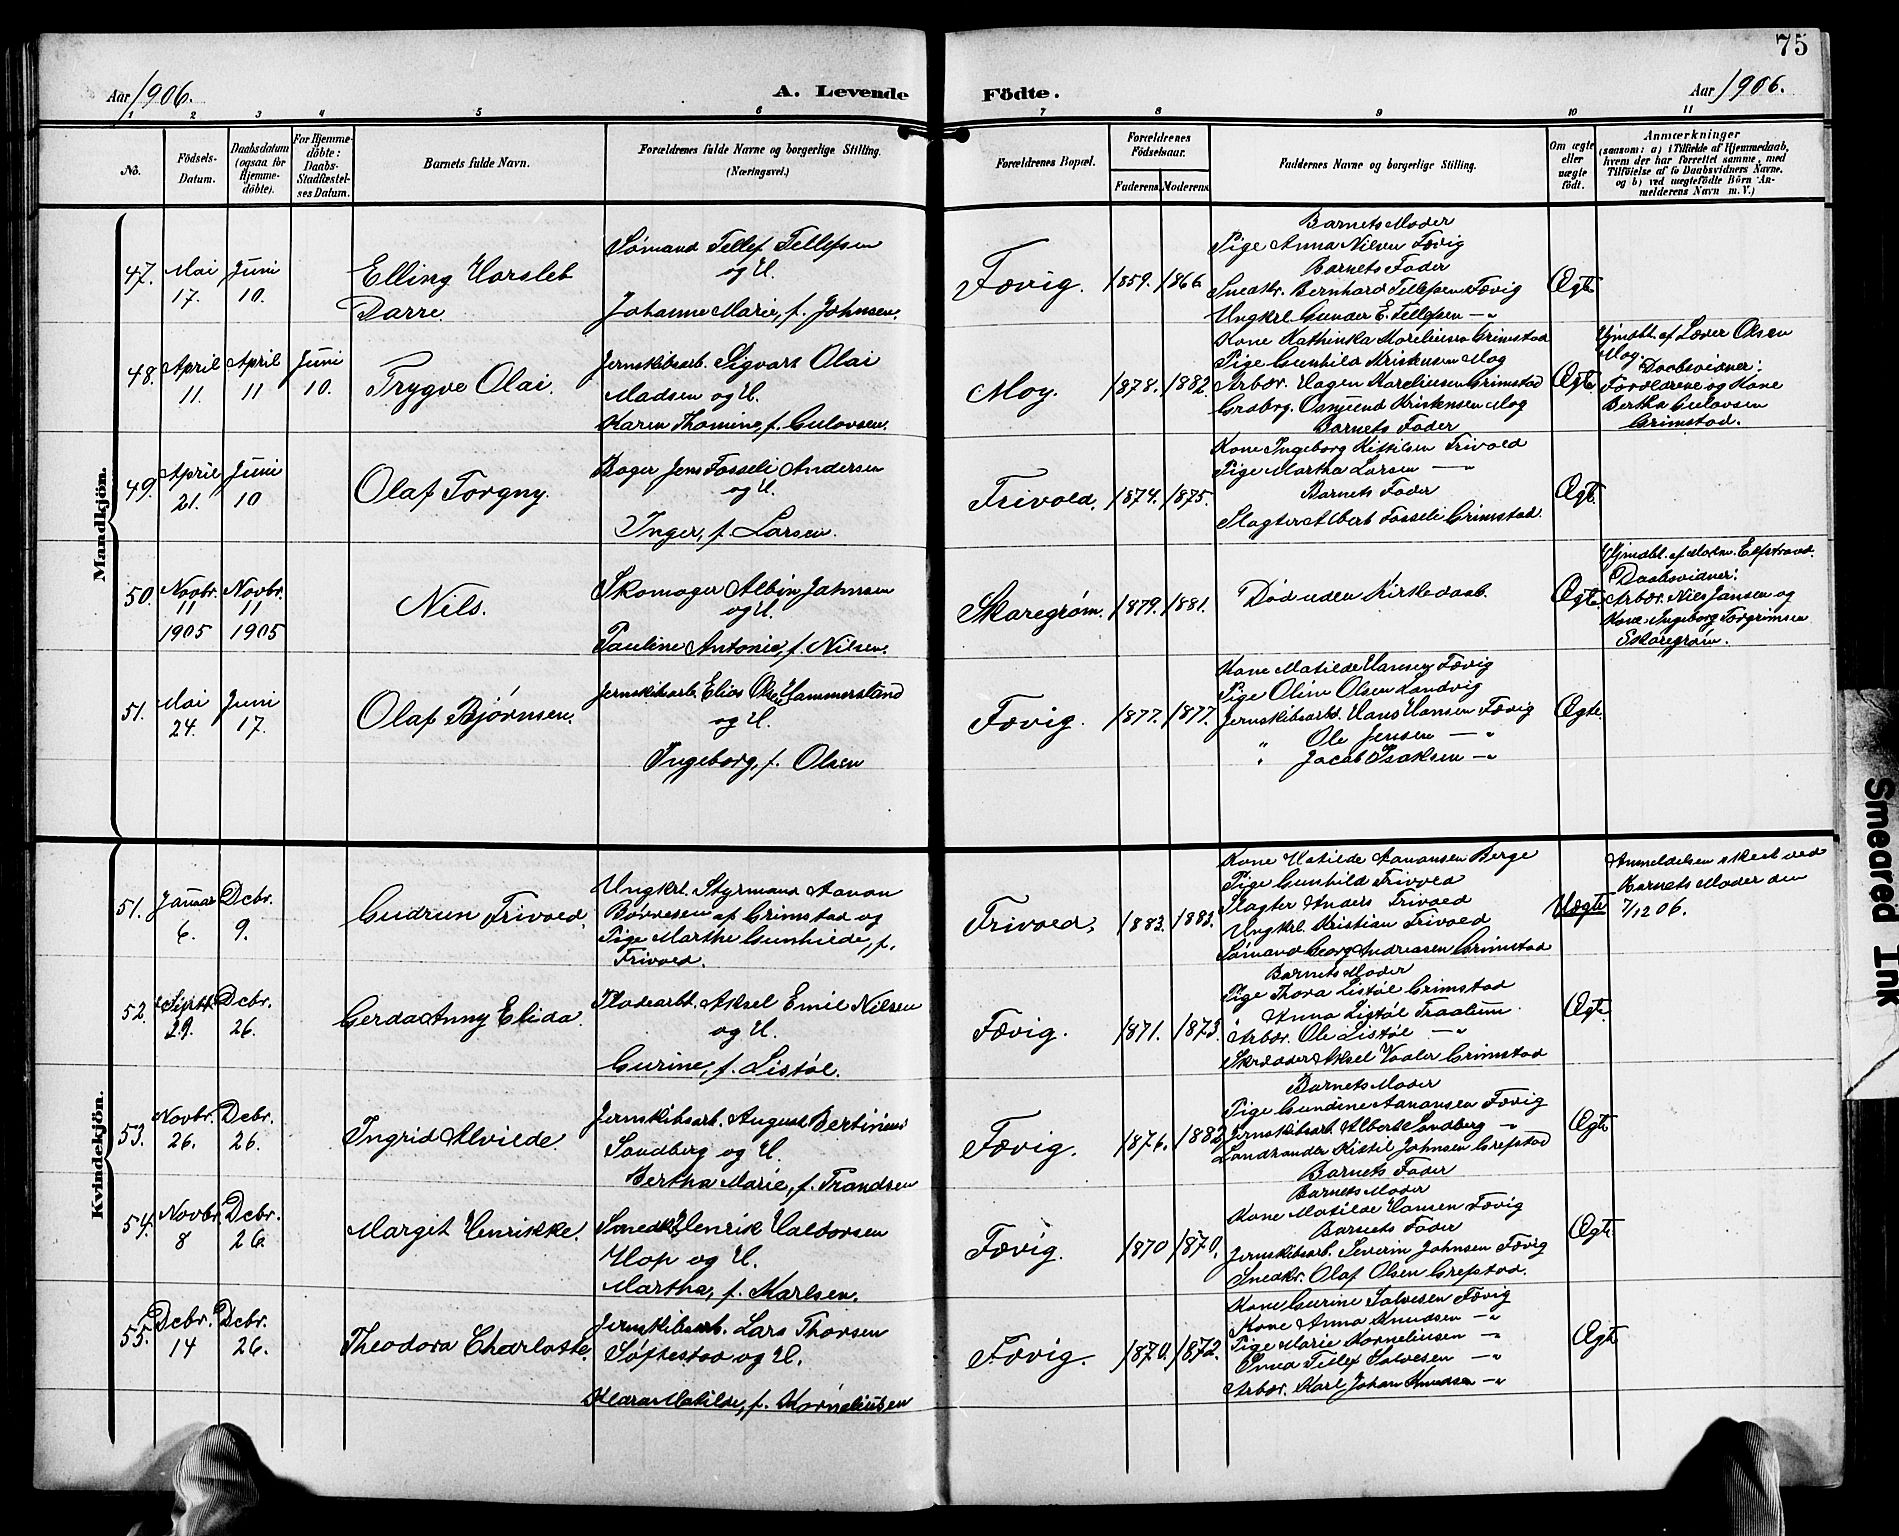 75
Aar 1906.
A. Levende Födte.
Aar 1906.
1 2 3 4 5 6 7 8 9 10 11
No.
Födsels-Datum.
Daabsdatum (ogsaa for Hjemme-döbte).
For Hjemme-döbte: Daabs-Stadfæstel-ses Datum.
Barnets fulde Navn.
Forældrenes fulde Navne og borgerlige Stilling.
(Næringsvei.)
Forældrenes Bopæl.
Forældrenes Födselsaar.
Faderens. Moderens.
Faddernes Navne og borgerlige Stilling.
Om ægte eller uægte födt.
Anmærkninger
(saasom: a) i Tilfælde af Hjemmedaab,
hvem der har forrettet samme, med
Tilföielse af to Daabsvidners Navne,
og b) ved uægtefödte Börn An-
melderens Navn m. V.)
Mandkjön.
47. Mai 17. Juni 10.
Elling Horsleb
Darre.
Sømand Tellef Tellefsen
og H.
Johanne Marie, f. Johnsen.
Fævig. 1859. 1866.
Barnets Moder
Pige Anna Nilsen Fævig
Barnets Fader
Snedkr. Bernhard Tellefsen Fævig
Ungkrl. Gunder E. Tellefsen — "
Ægte
48. April 11. April 11 Juni 10.
Trygve Olai.
Jernskibsarb. Sigvart Olai
Madsen og H.
Karen Thomine, f. Gulovsen.
Moy. 1878. 1882.
Kone Kathinka Moreliusen Grimstad
Pige Gunhild Kristensen Moy
Arbdr. Hagen Moreliusen Grimstad
Graborg. Osmund Kristensen Moy
Barnets Fader
Ægte
Hjmdbt. af Lærer Olsen
Moy. Daabsvidner:
Forældrene og Kone
Bertha Gulovsen
Grimstad.
49. April 21. Juni 10
Olaf Torgny.
Bager Jens Fosseli Andersen
og H.
Inger, f. Larsen.
Frivold. 1874. 1875.
Kone Ingeborg Kittilsen Frivold
Pige Martha Larsen — "
Barnets Fader
Slagter Albert Fosseli Grimstad.
Ægte
50. Novbr. 11 1905 Novbr. 11 1905
Nils.
Skomager Albin Jahnsen
og H.
Pauline Antonie, f. Nilsen.
Skaregrøm. 1879. 1881.
Død uden Kirkedaab.
Ægte
Hjmdbt. af Madm. Elfstrand.
Daabsvidner:
Arbdr. Nils Jansen og
Kone Ingeborg Torgrimsen
Skaregrøm.
51. Mai 24. Juni 17.
Olaf Bjørnsen.
Jernskibsarb. Elias Olsen Hammersland
og H.
Ingeborg, f. Olsen
Fævig. 1877. 1877.
Kone Matilde Hansen Fævig
Pige Oline Olsen Landvig
Jernskibsarb. Hans Hansen Fævig
" Ole Jensen — "
" Jacob Isaksen — "
Ægte.
Kvindekjön.
51. Januar 6. Dcbr. 9.
Gudrun Frivold.
Ungkrl. Styrmand Aanon
Børresen af Grimstad og
Pige Marthe Gunhilde, f.
Frivold.
Frivold. 1883. 1883.
Kone Matilde Aanonsen Berge
Pige Gunhild Frivold
Slagter Anders Frivold
Ungkrl. Kristian Frivold
Sømand Georg Andreasen Grimstad
Uægte
Anmeldelsen skeet ved
Barnets Moder den
7/12 06.
52. Septbr. 29. Dcbr. 26.
Gerda Anny Elida.
Pladearbt. Aksel Emil Nilsen
og H.
Gurine, f. Listøl.
Fævig. 1871. 1873.
Barnets Moder
Pige Thora Listøl Grimstad
" Anna Listøl Traalum
Arbdr. Ole Listøl — "
Skrædder Aksel Vaaler Grimstad
Ægte
53. Novbr. 26. Dcbr. 26.
Ingrid Alvilde.
Jernskibsarb. August Bertinius
Sandberg og H.
Bertha Marie, f. Trondsen
Fævig. 1876. 1882.
Barnets Moder
Pige Gundine Aanonsen Fævig
Jernskibsarb. Albert Sandberg "
Landhandler Kittil Johnsen Grefstad
Barnets Fader
Ægte
54. Novbr. 8 Dcbr. 26.
Margit Henrikke.
Smedk. Henrik Haldorsen
Hop og H.
Martha, f. Karlsen.
Fævig. 1870 1870.
Barnets Moder
Kone Matilde Hansen Fævig
Barnets Fader
Jernskibsarb. Severin Johnsen Fævig
Snedkr. Olaf Olsen Grefstad.
Ægte
55. Dcbr. 14 Dcbr. 26.
Theodora Charlotte.
Jernskibsarb. Lars Thorsen
Søftestad og H.
Klara Matilde, f. Korneliusen
Fævig. 1870. 1872.
Kone Gurine Salvesen Fævig
Kone Anna Knudsen — "
Pige Marie Korneliusen — "
Smed Tellef Salvesen — "
Arbdr. Karl Johan Knudsen — "
Ægte
Smeared Ink